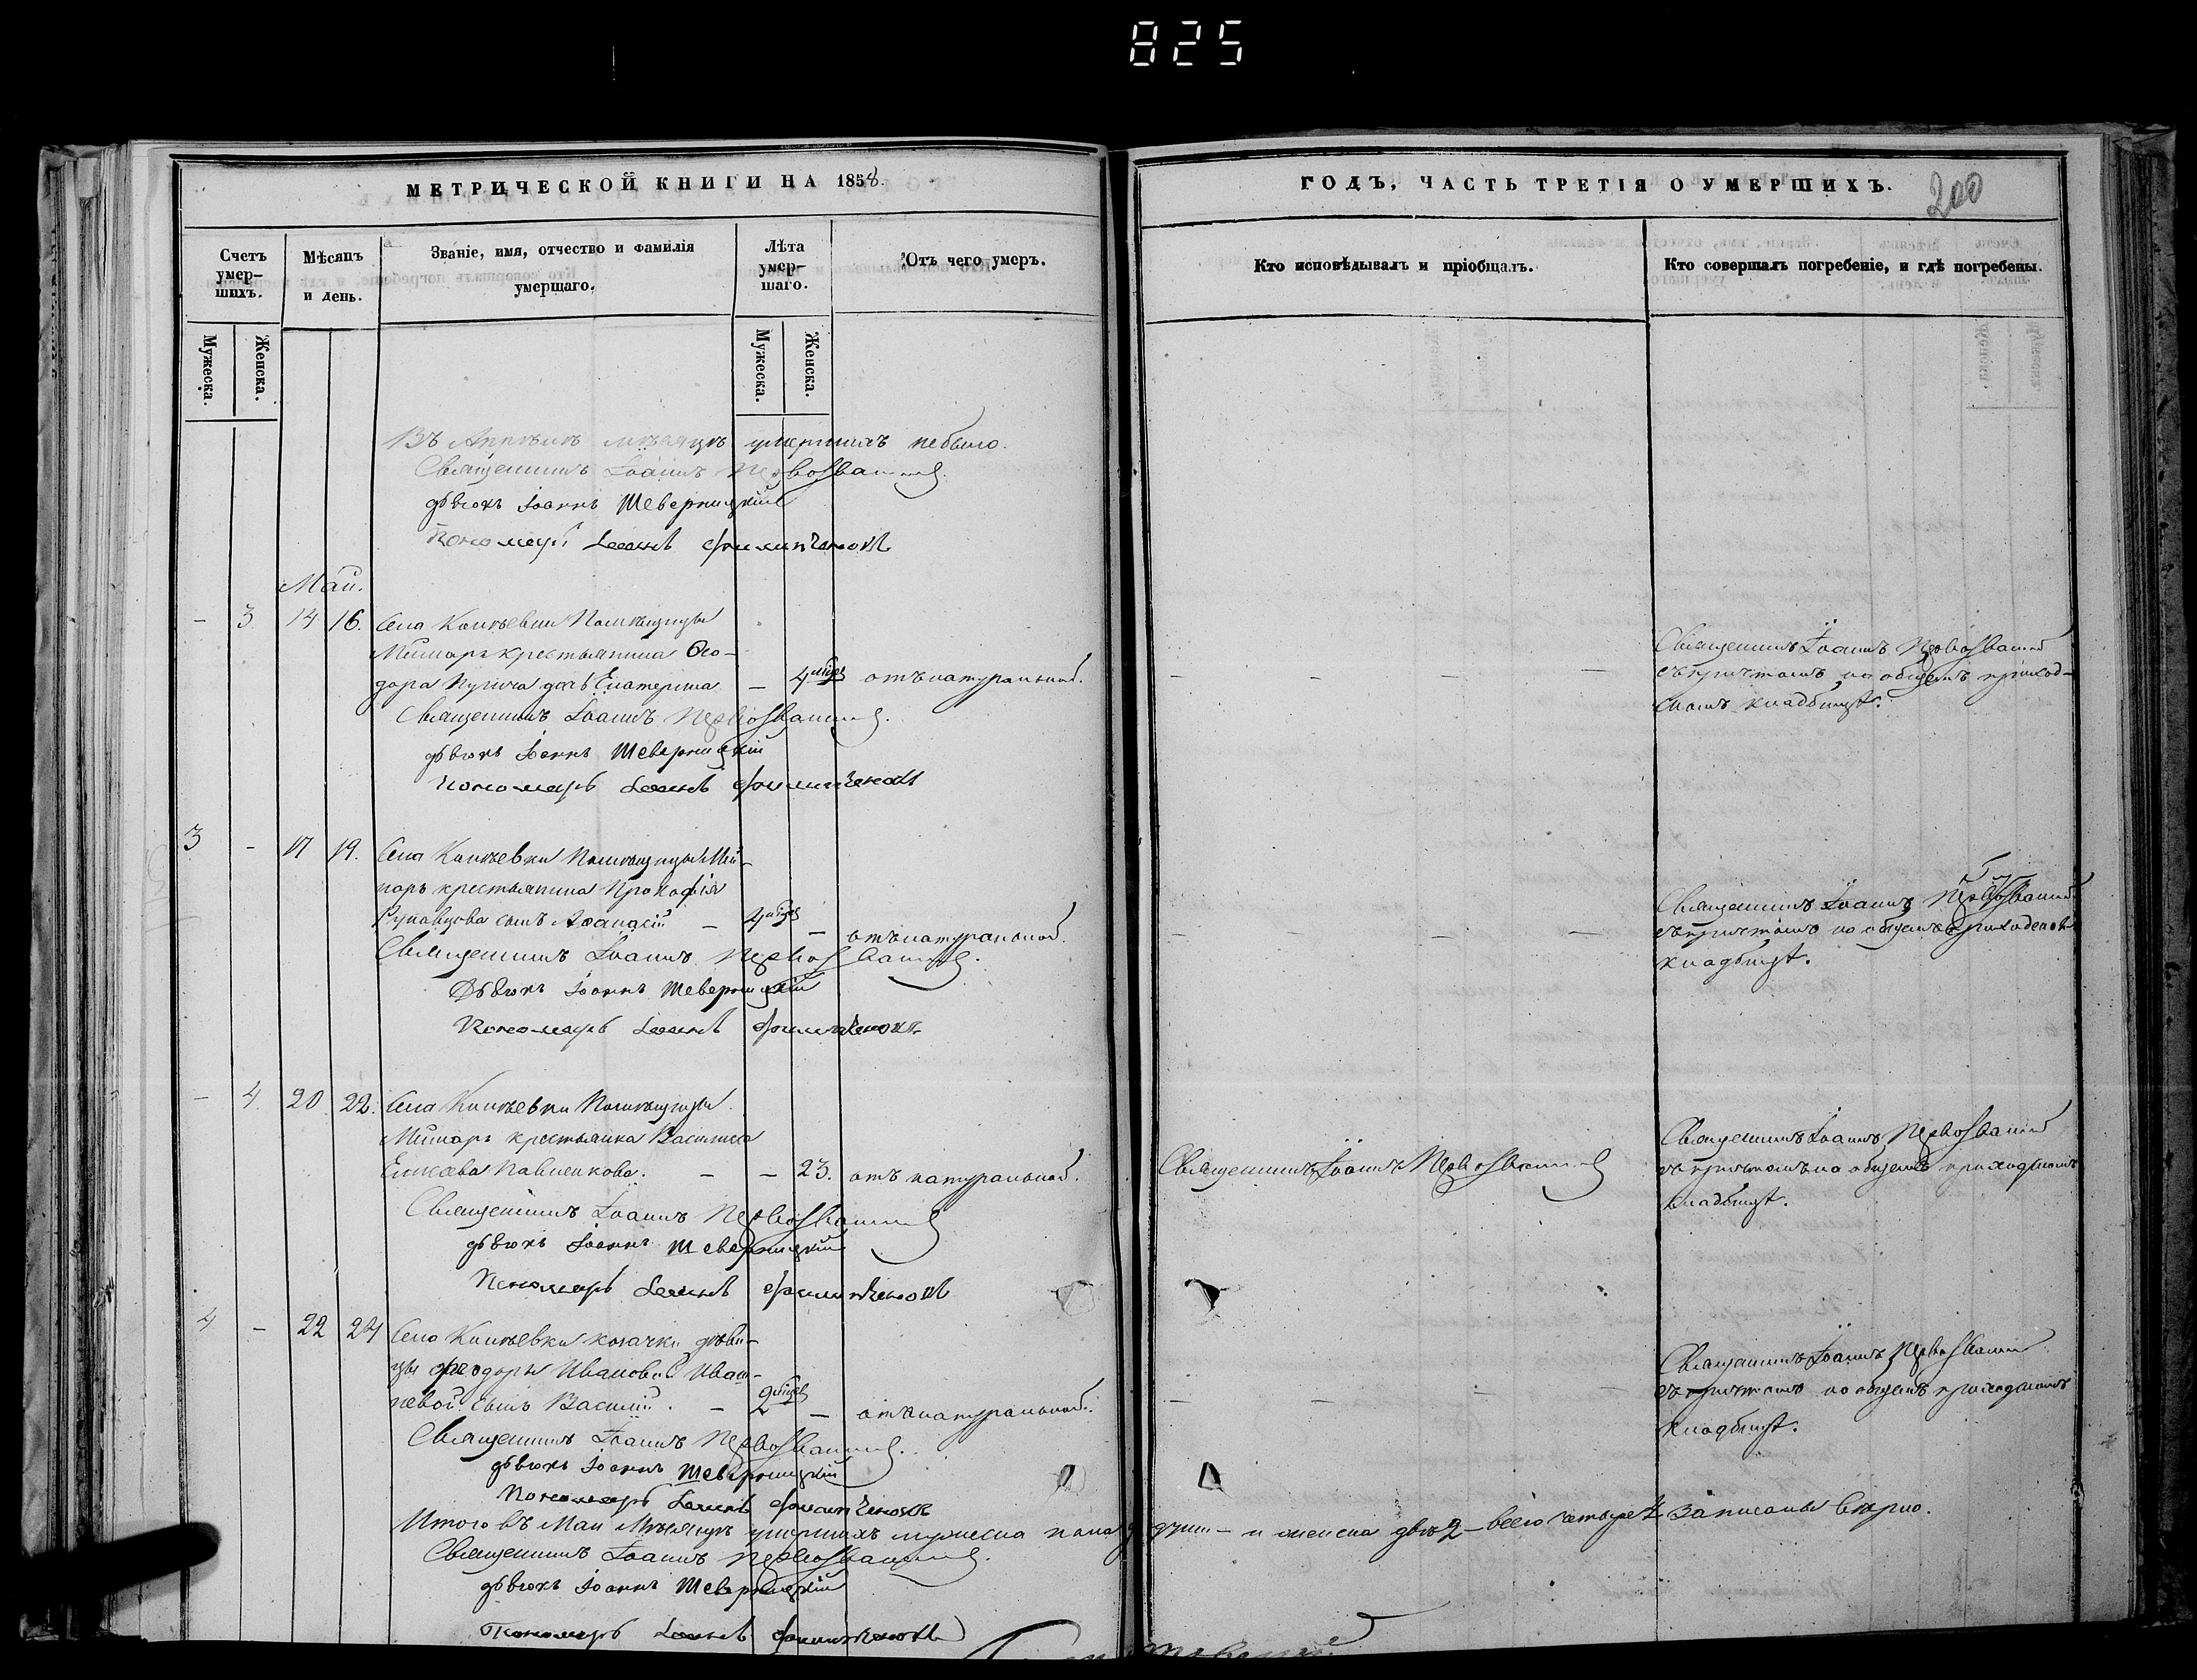 825
МЕТРИЧЕСКОЙ КНИГИ НА 1858.
ГОДЪ, ЧАСТЬ ТРЕТІЯ О УМЕРШИХЪ.
200
Счетъ умер-шихъ.
Мѣсяцъ и день.
Званіе, имя, отчество и фамилія умершаго.
Лѣта умер-шаго.
Отъ чего умеръ.
Кто исповѣдывалъ и пріобщалъ.
Кто совершалъ погребеніе, и гдѣ погребены.
Мужеска.
Женска.
Мужеска.
Женска.
Въ Апрѣлѣ мѣсяцѣ умершихъ небыло.
Священникъ Іоаннъ Первозванный
дьячокъ Іоаннъ Шеверницкій
Пономарь Іоаннъ
Май.
- 3 14 16. Села Помѣщицы
крестьянина Ѳео-
дора дочь Екатерина - 4 мѣсяц отъ натуральной.
Священникъ Іоаннъ Первозванный
съ причтомъ на общемъ приход-
скомъ кладбищѣ.
Священникъ Іоаннъ Первозванный.
дьячокъ Іоаннъ Шеверницкій
Пономарь Іоаннъ
3 - 17 19. Села Помѣщицы
крестьянина Прокофія
сынъ Аѳанасій - 4 мѣсяц - отъ натуральной.
Священникъ Іоаннъ Первозванный
съ причтомъ на общемъ приходскомъ
кладбищѣ.
Священникъ Іоаннъ Первозванный.
Дьячокъ Іоаннъ Шеверницкій
Пономарь Іоаннъ
- 4. 20 22. Села Помѣщицы
крестьянка Василиса
Павленкова. - - 23. отъ натуральной.
Священникъ Іоаннъ Первозванный
Священникъ Іоаннъ Первозванный
съ причтомъ на общемъ приходскомъ
кладбищѣ.
Священникъ Іоаннъ Первозванный
дьячокъ Іоаннъ Шеверницкій
Пономарь Іоаннъ
4 - 22 24 Села козачки дѣви-
цы Феодоры Ивановой Иваш-
невой сынъ Василій. - 2 мѣсяц - отъ натуральной.
Священникъ Іоаннъ Первозванный
съ причтомъ на общемъ приходскомъ
кладбищѣ.
Священникъ Іоаннъ Первозванный.
дьячокъ Іоаннъ Шеверницкій
Пономарь Іоаннъ
Итого въ Маи Мѣсяцѣ умершихъ мужеска пола - и женска двѣ 2 - всего четыре 4 Записаны вѣрно.
Священникъ Іоаннъ Первозванный.
дьячокъ Іоаннъ Шеверницкій
Пономарь Іоаннъ